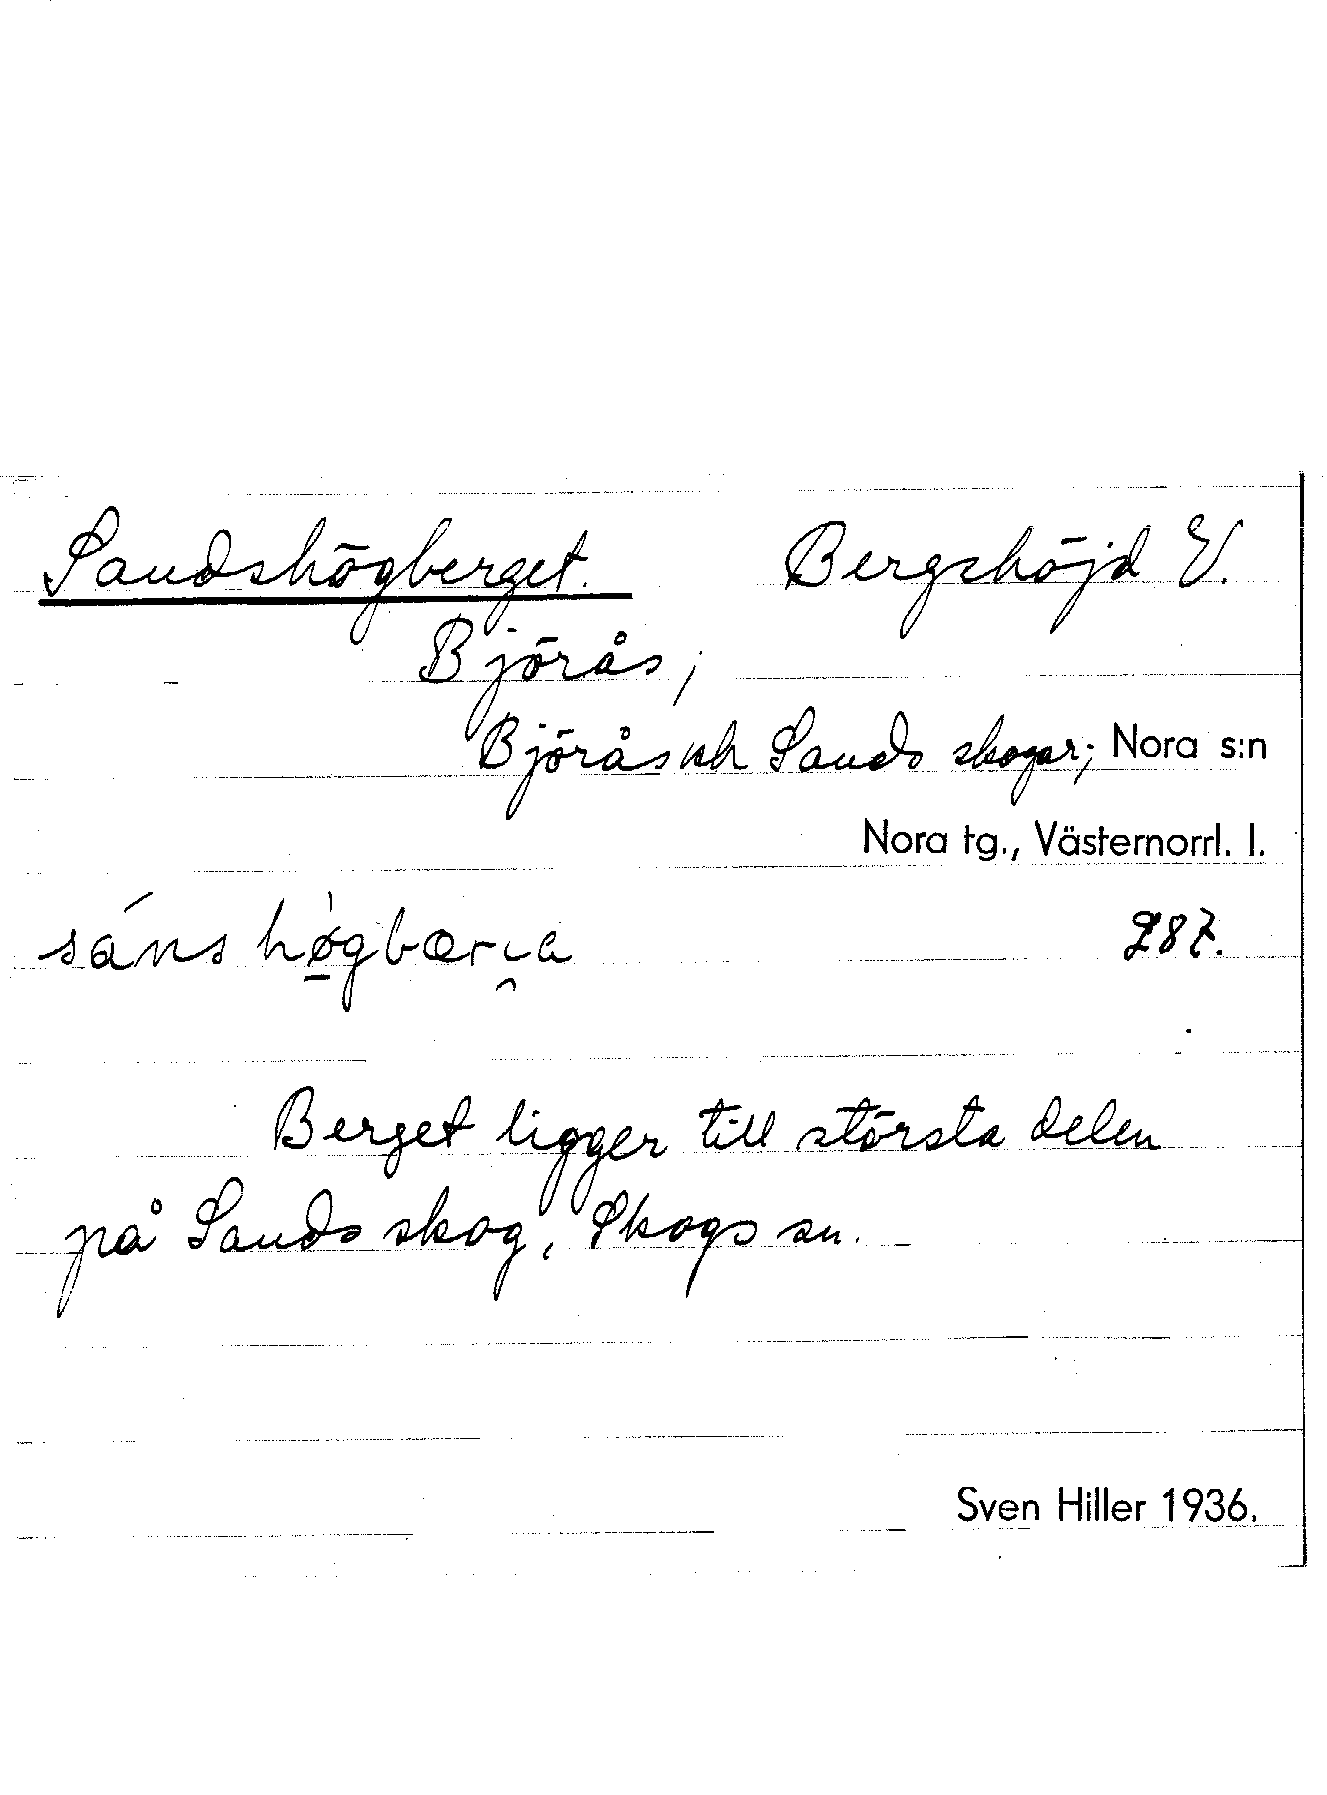 Sandshögberget. Bergshöjd V.
Björås;
Björås och Sands skogar; Nora s:n
Nora tg., Västernorrl. l.
sáns høgbær
287.
Berget ligger till största delen
på Sands skog, Skogs sn.
Sven Hiller 1936.